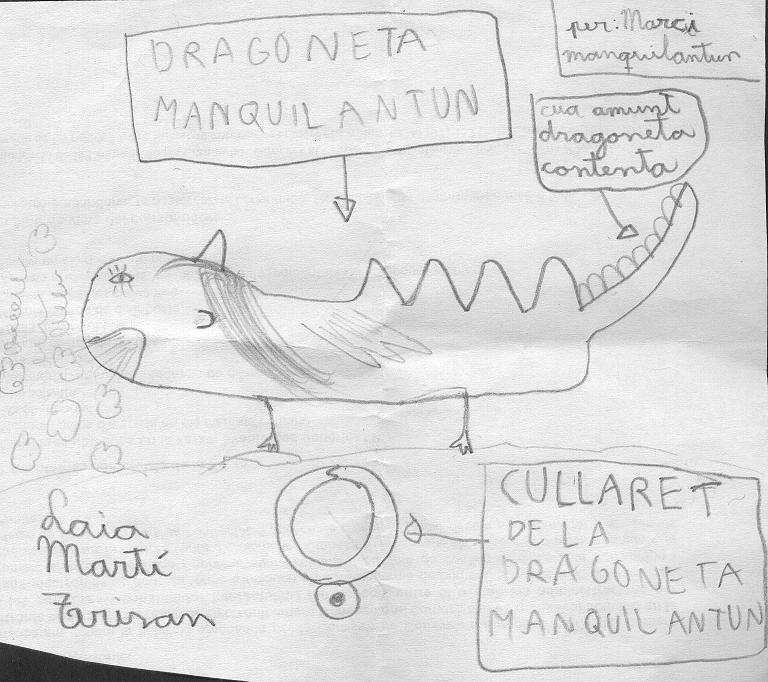 DRAGONETA
MANQUILANTUN
per: Marçi
manquilantun
cua amunt
dragoneta
contenta
Laia
Martí
CULLARET
DE LA
DRAGONETA
MANQUILANTUN